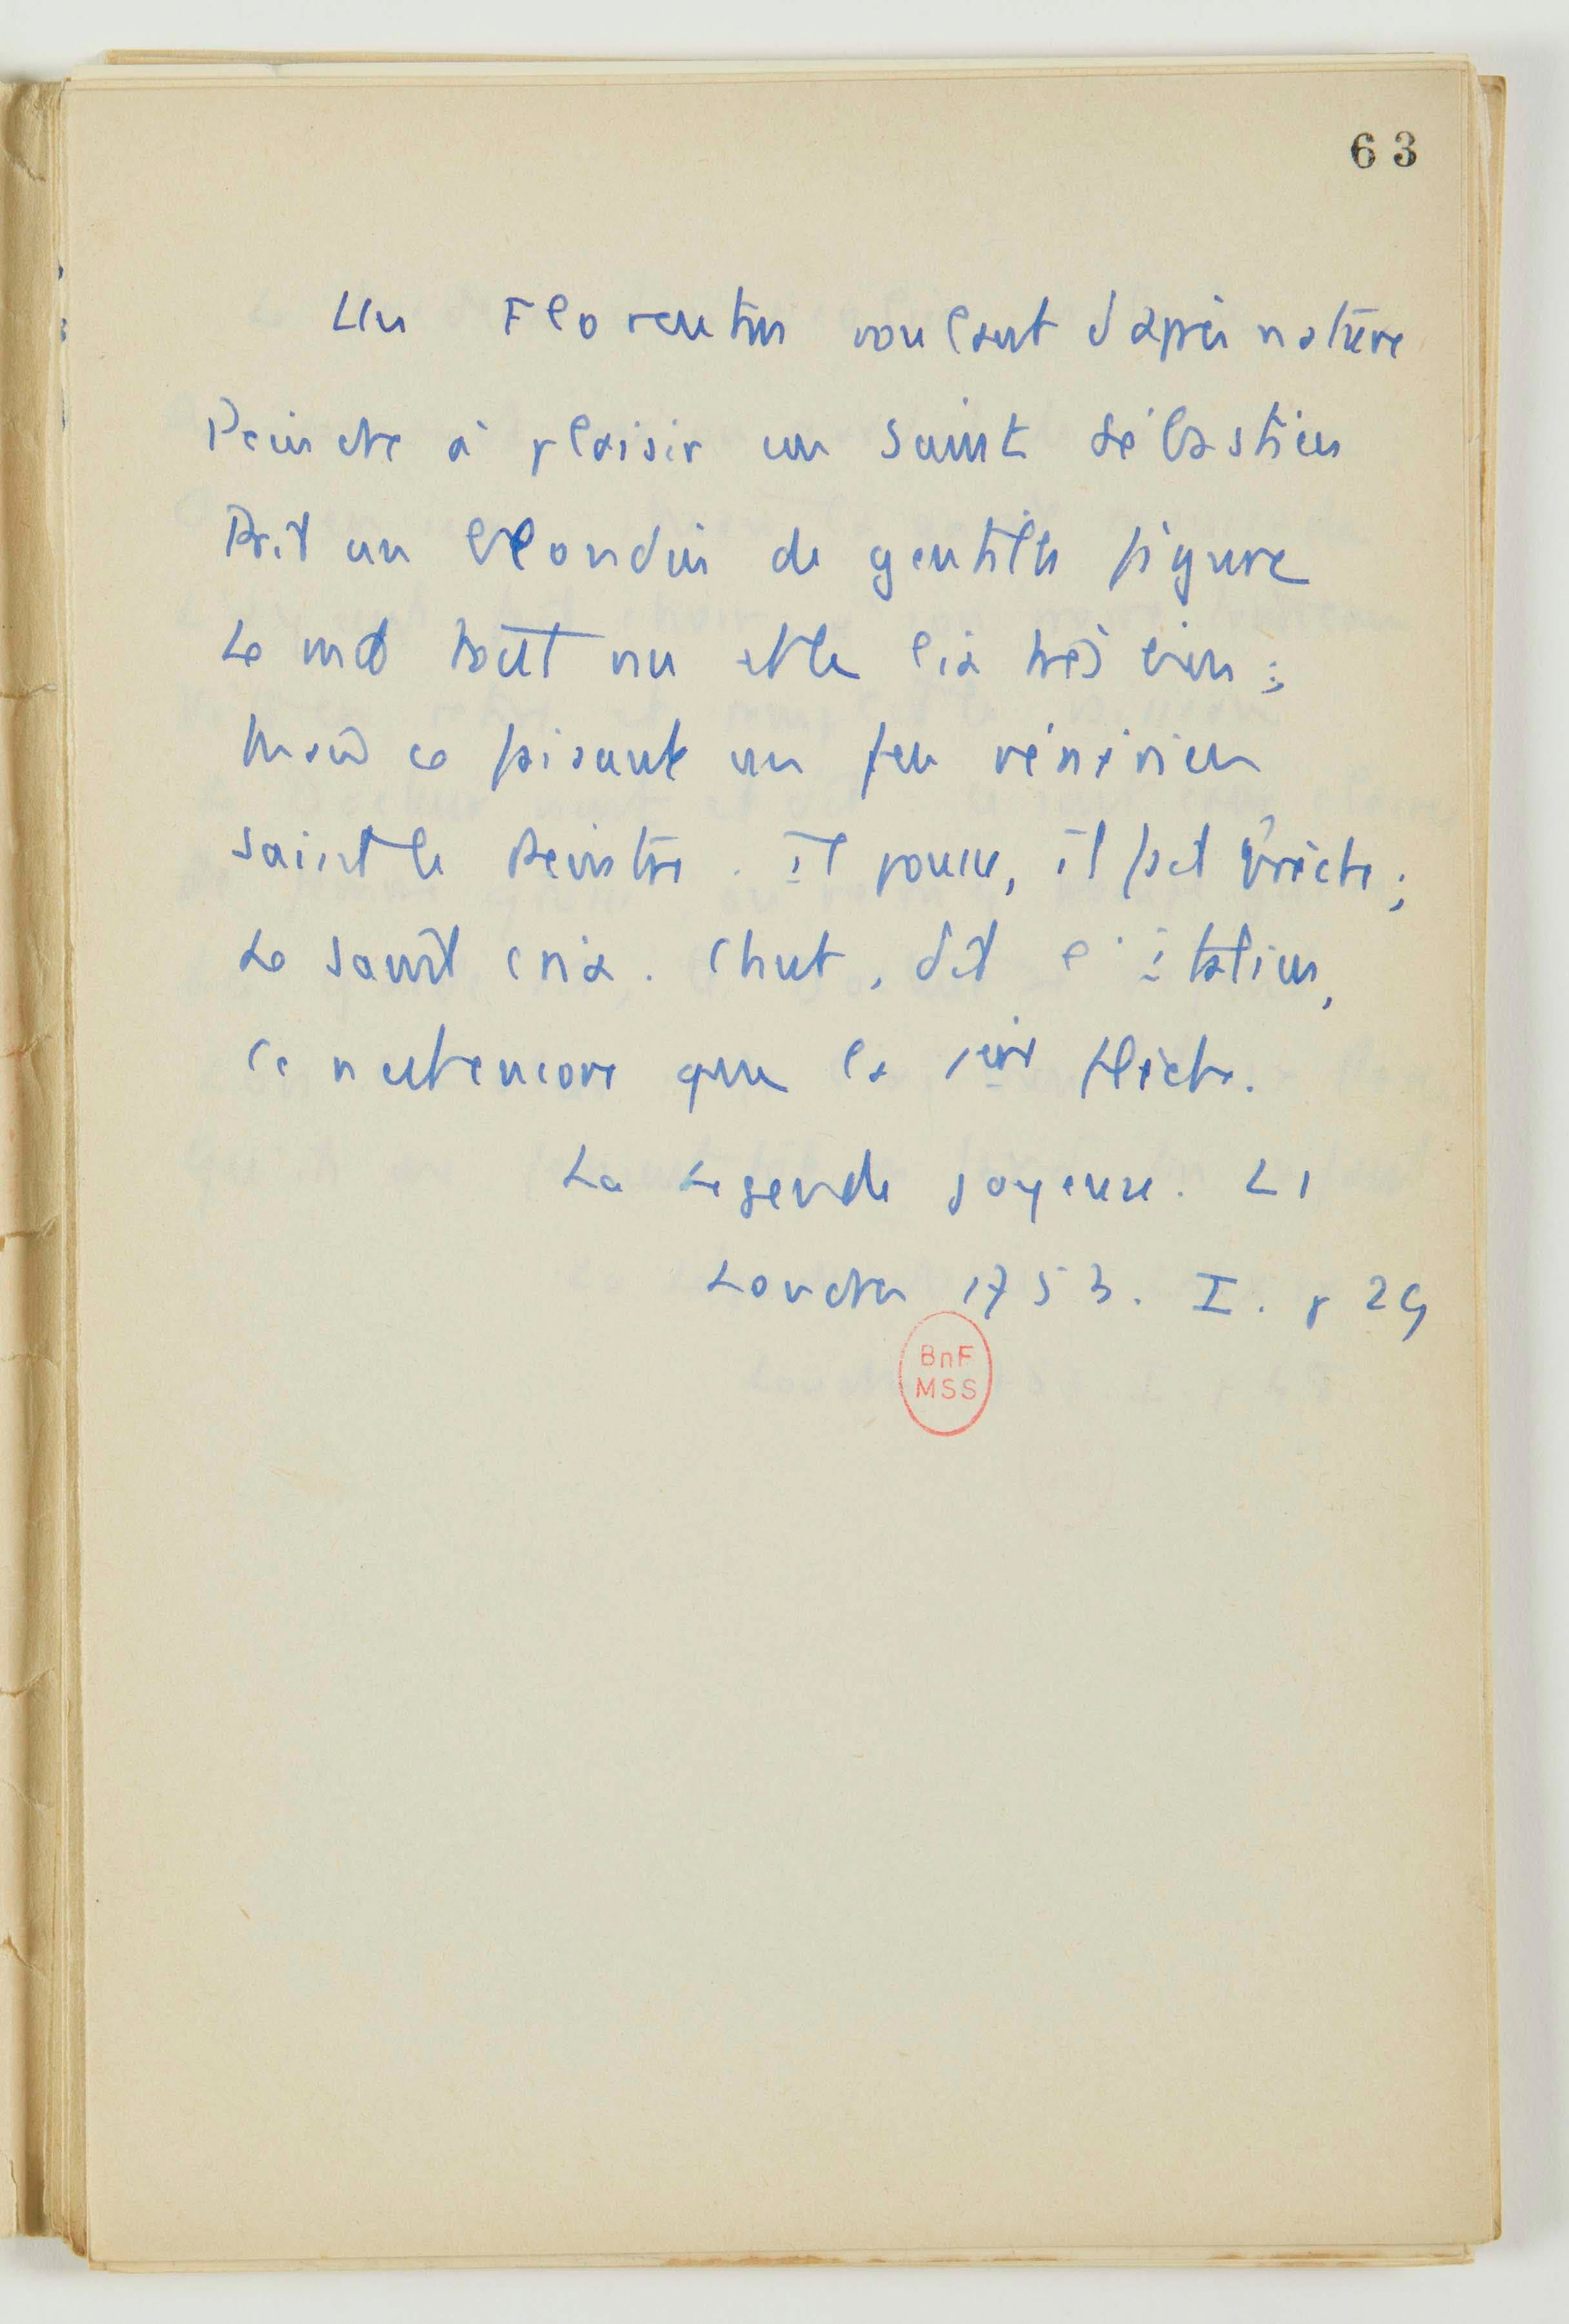 63
Un Florentin voulant d'après nature
Peindre à plaisir un saint Sébastien
Prit un blondin de gentille figure
Le mit tout nu et le lia très bien :
Mais ce faisant un feu vénérien
Saisit le peintre. il pousse, il fait brèche ;
Le saint cria. Chut, dit l'italien,
Ce n'est encore que la 1ère flèche.
La Legende joyeuse. LI
Londres 1753. I. p 29
BnF
MSS